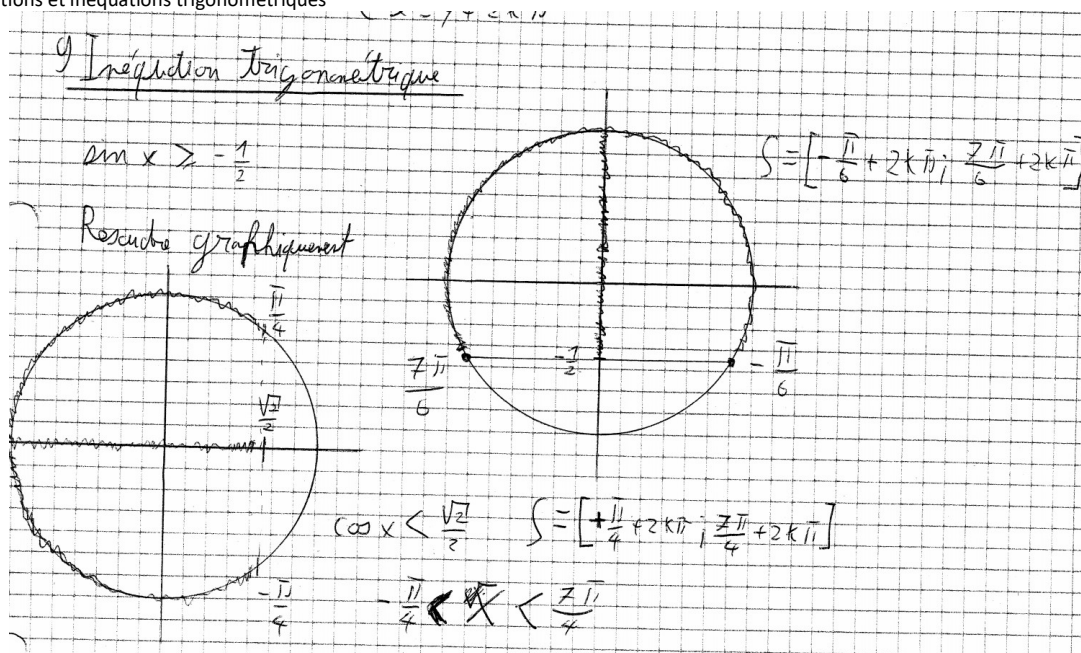 tions et inéquations trigonométriques
9 Inéquation trigonométrique
sin x ≥ -1/2
S = [-π/6 + 2kπ ; 7π/6 + 2kπ]
Resoudre graphiquement
π/4
√2/2
-π/4
7π/6
-1/2
-π/6
cos x < √2/2
S = [+π/4 + 2kπ ; 7π/4 + 2kπ]
-π/4 < x < 7π/4